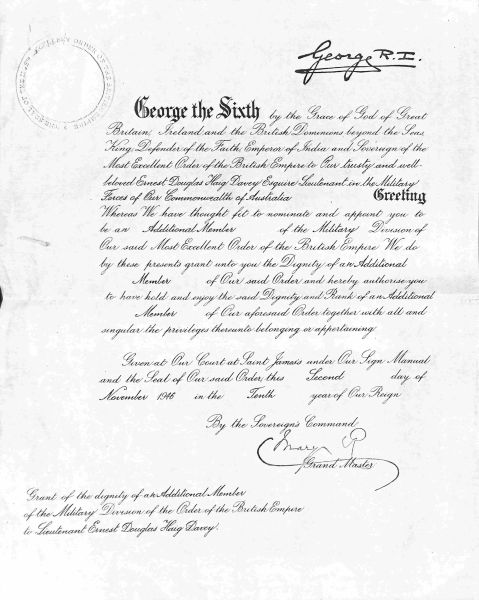 George R.I.
George the Sixth by the Grace of God of Great
Britain, Ireland and the British Dominions beyond the Seas,
King, Defender of the Faith, Emperor of India and Sovereign of the
Most Excellent Order of the British Empire to Our trusty and well-
beloved Ernest Douglas Haig Davey Esquire Lieutenant in the Military
Forces of Our Commonwealth of Australia Greeting
Whereas We have thought fit to nominate and appoint you to
be an Additional Member of the Military Division of
Our said Most Excellent Order of the British Empire We do
by these presents grant unto you the Dignity of an Additional
Member of Our said Order and hereby authorise you
to have hold and enjoy the said Dignity and Rank of an Additional
Member of Our aforesaid Order together with all and
singular the privileges thereunto belonging or appertaining.
Given at Our Court at Saint James's under Our Sign Manual
and the Seal of Our said Order this Second day of
November 1946 in the Tenth year of Our Reign
By the Sovereign's Command.
Mary R
Grand Master
Grant of the dignity of an Additional Member
of the Military Division of the Order of the British Empire
to Lieutenant Ernest Douglas Haig Davey.